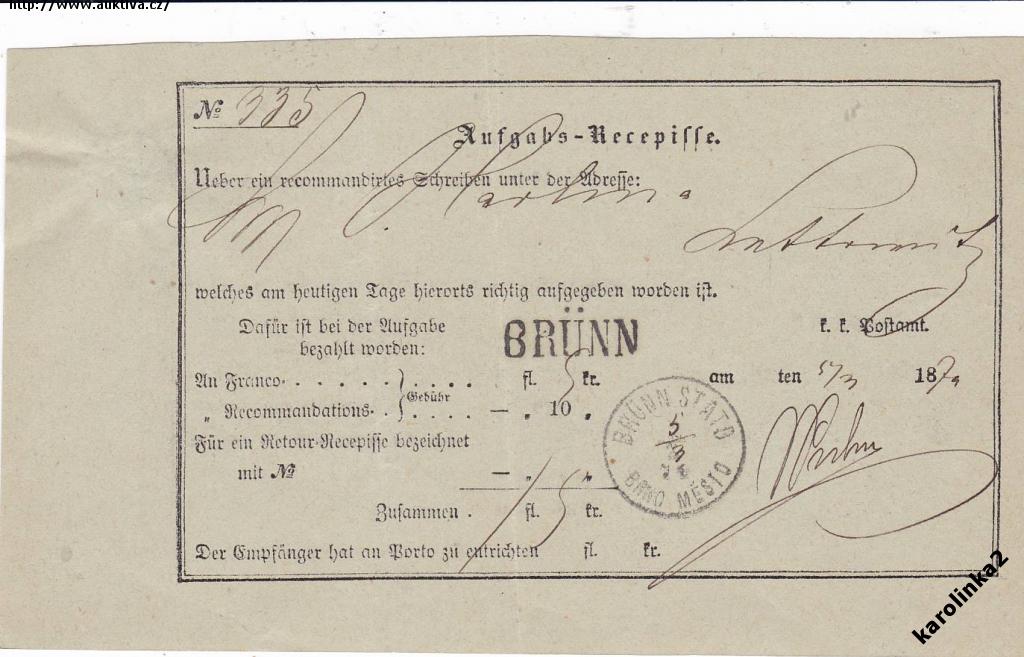 http://www.auktiva.cz/
№ 335
Aufgabs-Recepisse.
Ueber ein recommandirtes Schreiben unter der Adresse:
Lettowitz
welches am heutigen Tage hierorts richtig aufgegeben worden ist.
Dafür ist bei der Aufgabe
bezahlt worden:
BRÜNN
k. k. Postamt.
An Franco . . . . . . } Gebühr . . . . fl. 5 kr.
am ten 5/3 187
„ Recommandations . . } . . . . — „ 10 „
Für ein Retour-Recepisse bezeichnet
mit № — „ „
Zusammen . fl. 15 kr.
Der Empfänger hat an Porto zu entrichten fl. kr.
BRÜNN STADT
5
3
BRNO MĚSTO
karolinka2